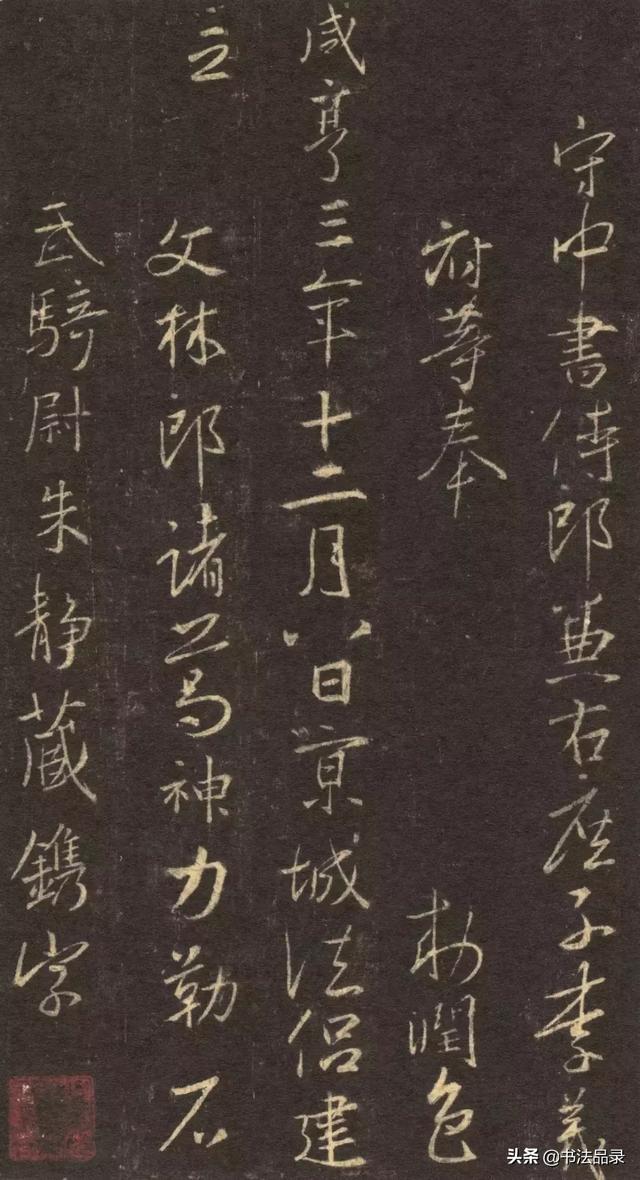 守中書侍郎兼右庶子李義
府等奉 勅潤色
咸亨三年十二月八日京城法侶建
立 文林郎諸葛神力勒石
武騎尉朱靜藏鐫字
头条 @书法品录